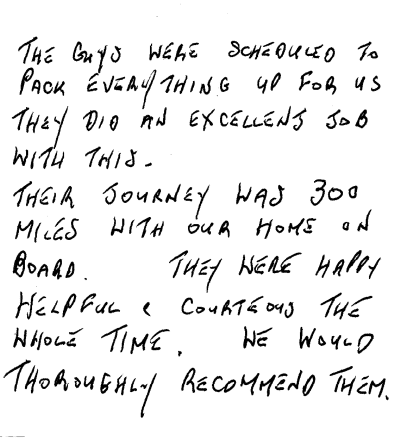 THE GUYS WERE SCHEDULED TO
PACK EVERYTHING UP FOR US
THEY DID AN EXCELLENT JOB
WITH THIS.
THEIR JOURNEY WAS 300
MILES WITH OUR HOME ON
BOARD. THEY WERE HAPPY
HELPFUL & COURTEOUS THE
WHOLE TIME. WE WOULD
THOROUGHLY RECOMMEND THEM.